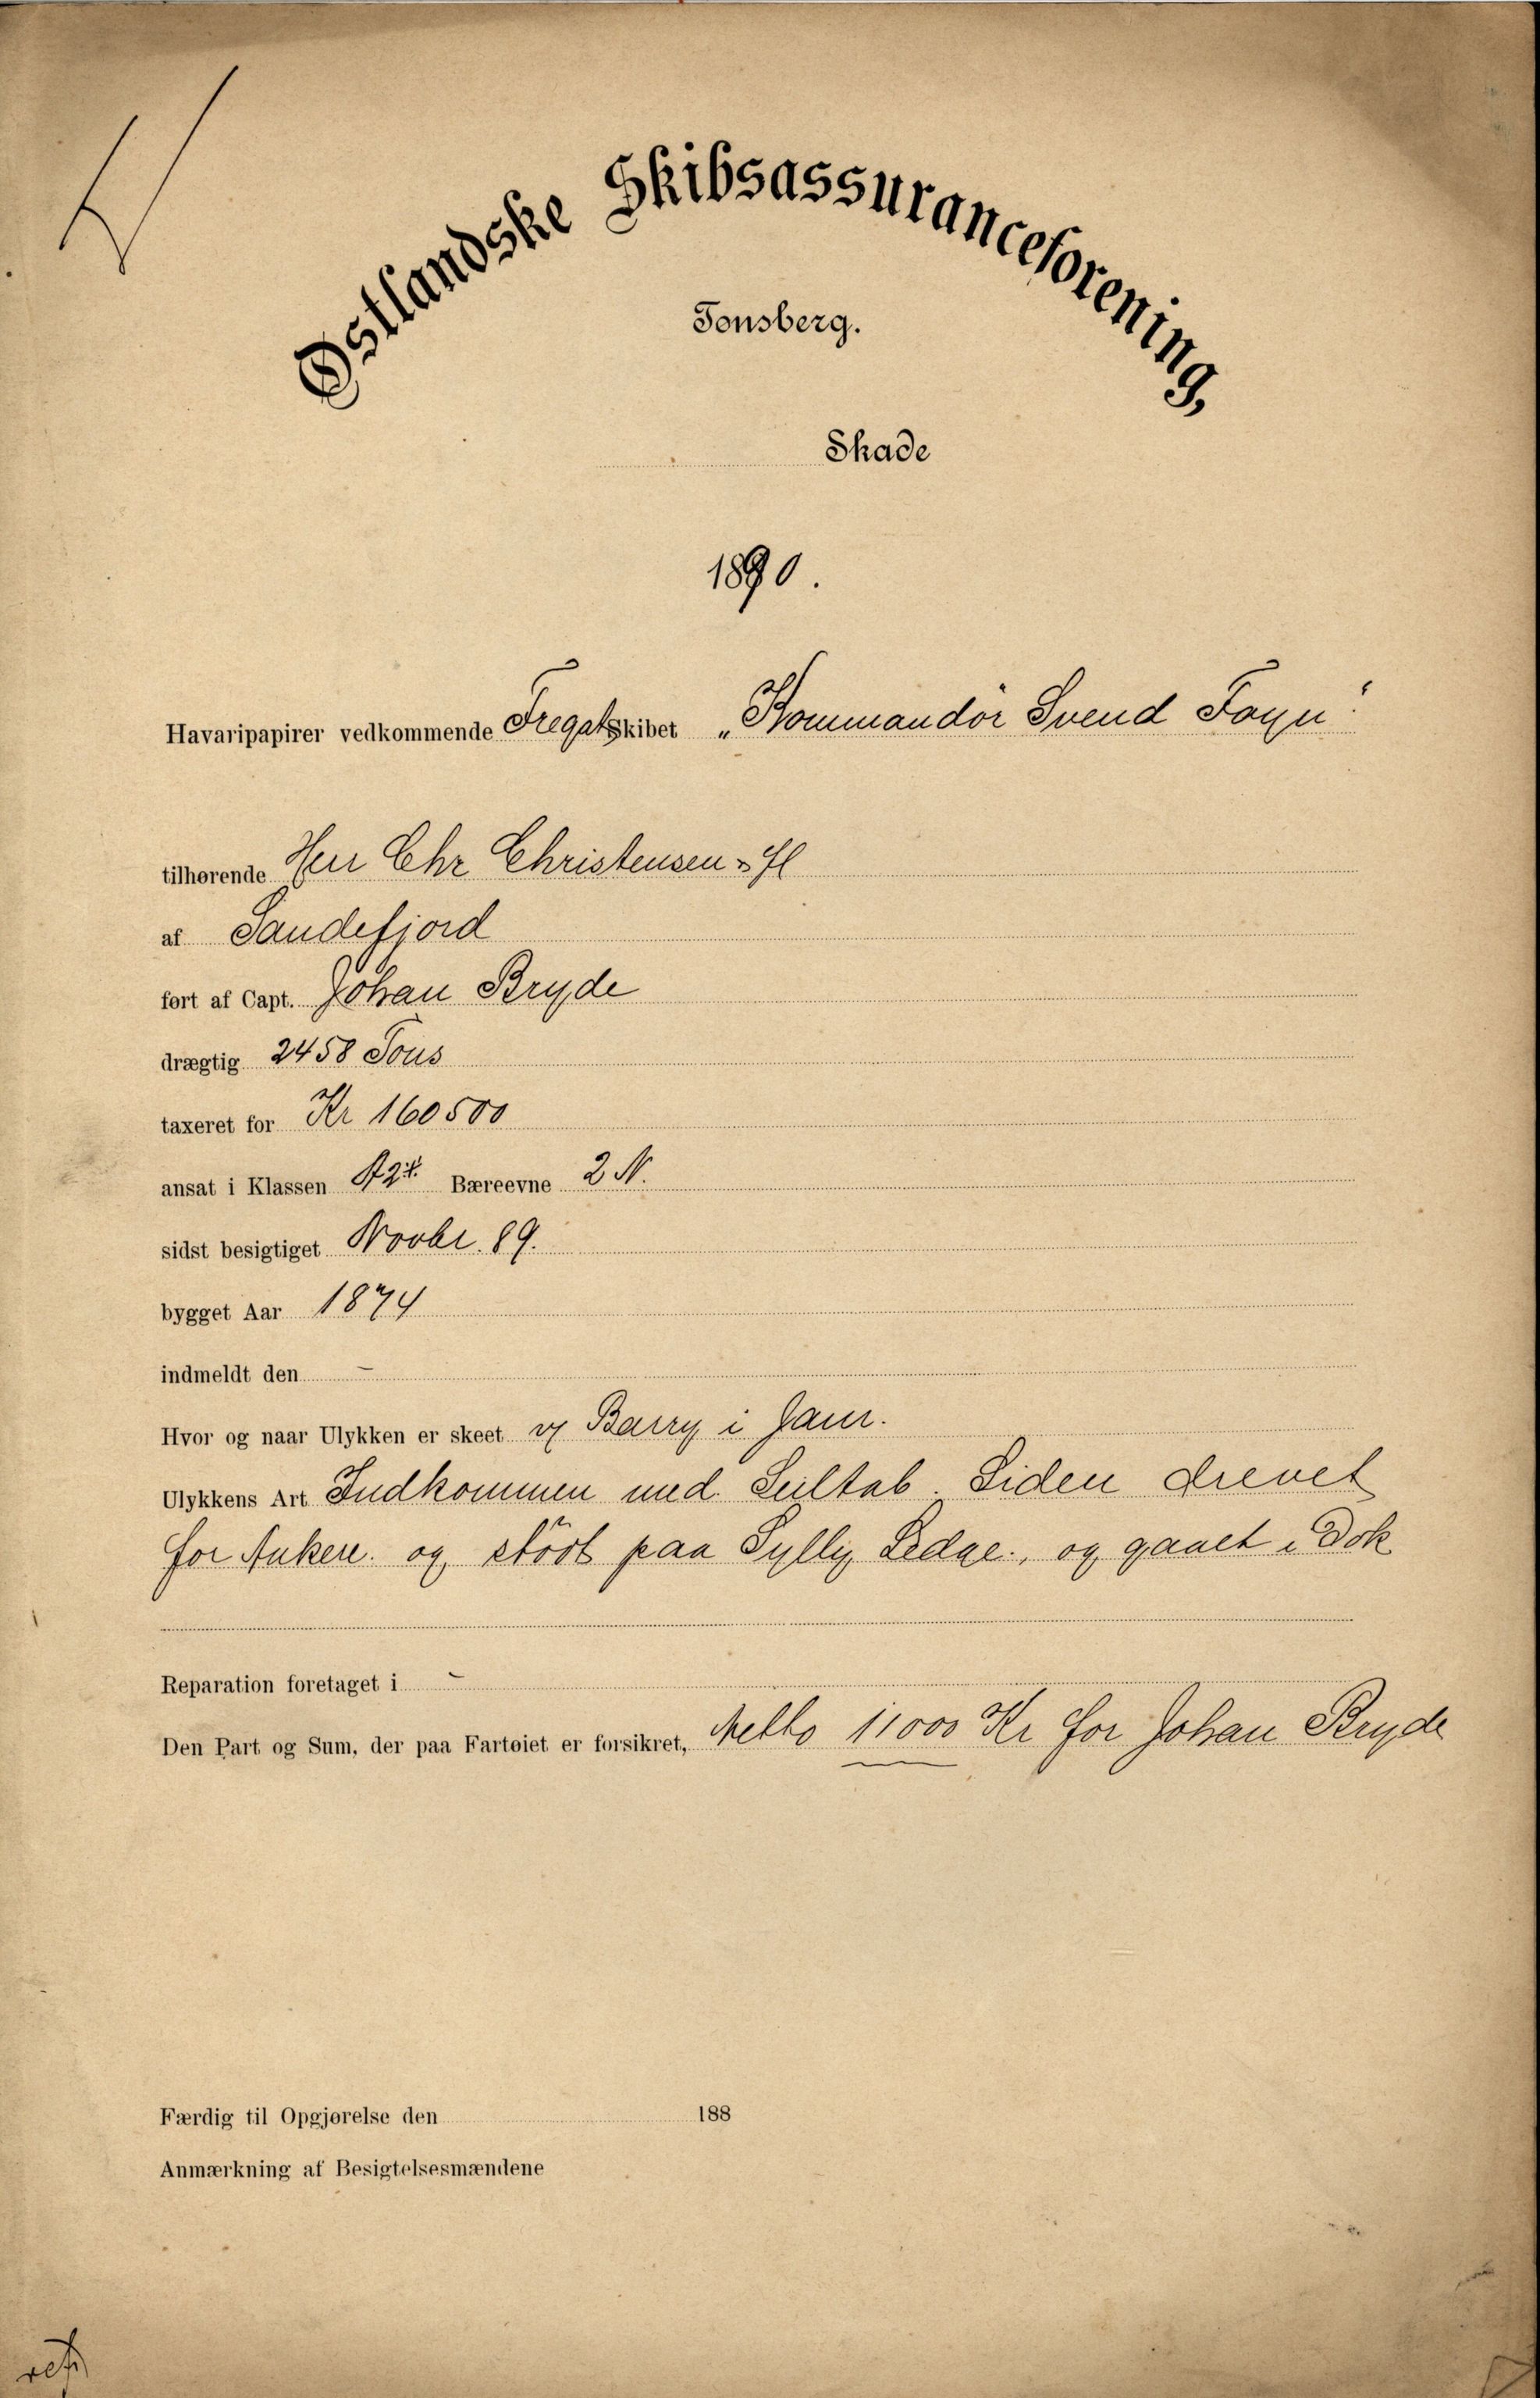 Østlandske Skibsassuranceforening,
Tønsberg.
Skade
1890.
Havaripapirer vedkommende Fregatskibet „Kommandör Svend Foyn"
tilhørende Herr Chr Christensen
af Sandefjord
ført af Capt. Johan Bryde
drægtig 2458 Tons
taxeret for Kr 160500
ansat i Klassen Bæreevne 2 N.
sidst besigtiget Novbr. 89.
bygget Aar 1874
indmeldt den –
Hvor og naar Ulykken er skeet v/ Barry i Janr.
Ulykkens Art Indkommen med Seiltab. Siden drevet
for Ankere. og stödt paa Sylly Ledge., og gaaet i Dok
Reparation foretaget i –
Den Part og Sum, der paa Fartøiet er forsikret, Netto 11000 Kr for Johan Bryde
Færdig til Opgjørelse den 188
Anmærkning af Besigtelsesmændene